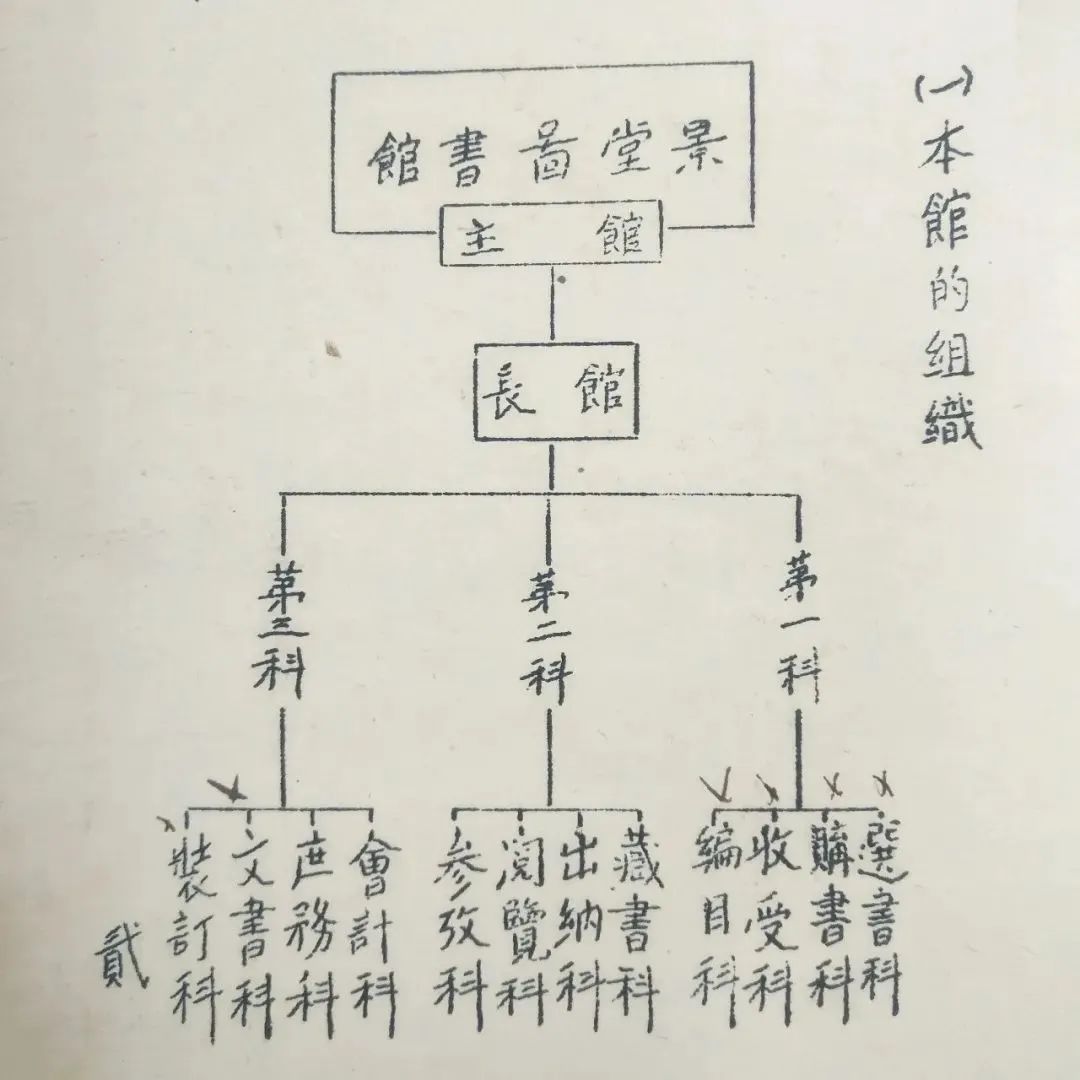 (一)本館的組織
景堂圖書館
館主
館長
第一科
第二科
第三科
選書科
購書科
收受科
編目科
藏書科
出納科
閱覽科
參攷科
會計科
庶務科
文書科
裝訂科
貳